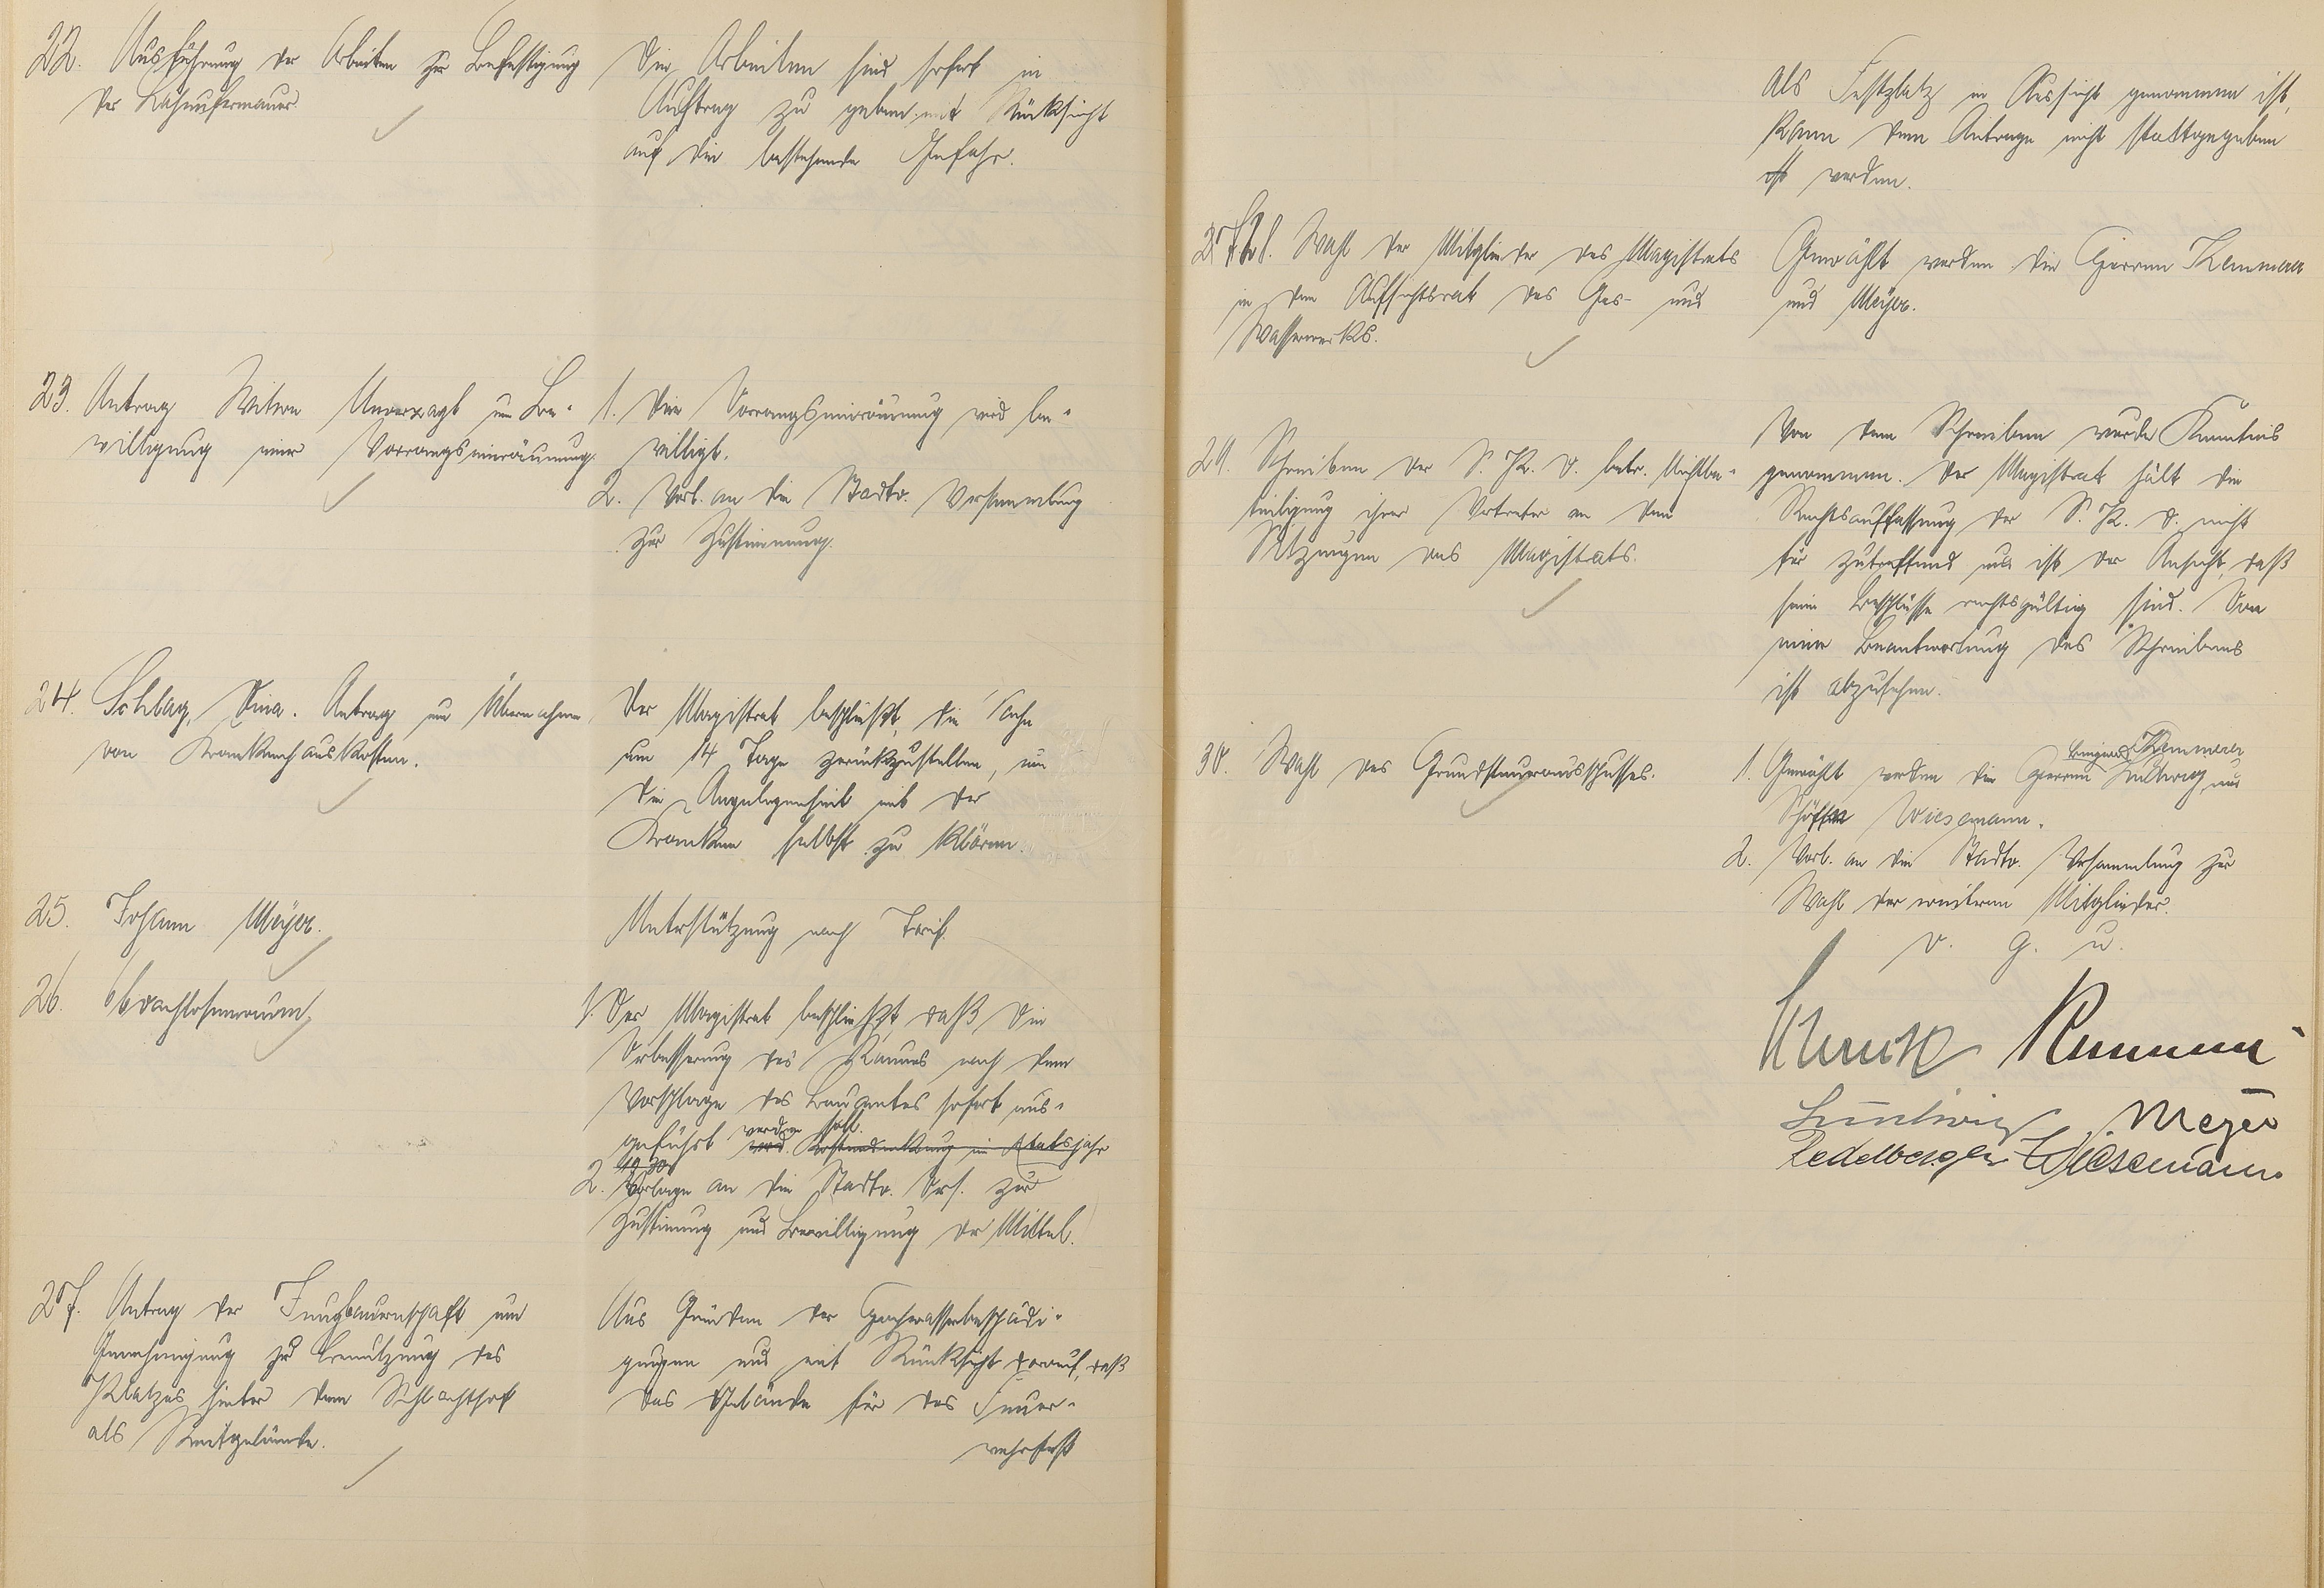 22. Ausführung der Arbeiten zur Befestigung
der Lahnufermauer.
Die Arbeiten sind sofort in
Auftrag zu geben mit Rücksicht
auf die bestehende Gefahr.
23. Antrag Witwe Unverzagt um Be-
willigung einer Vorrangseinräumung.
1. Die Vorrangseinräumung wird be-
willigt.
2. Vorl. an die Stadtv. Versammlung
zur Zustimmung.
24. Schlag, Dina. Antrag um Übernahme
von Krankenhauskosten.
Der Magistrat beschließt, die Sache
um 14 Tage zurückzustellen, um
die Angelegenheit mit der
Kranken selbst zu klären.
25. Johann Meyer.
Unterstützung nach Tarif.
26. Obdachlosenraum.
1. Der Magistrat beschließt, daß die
Verbesserung des Raumes nach dem
Vorschlage des Bauamtes sofort aus-
werden soll.
geführt wird. Kostendeckung im Etatsjahr
1930
2. Vorlage an die Stadtv. Vers. zur
Zustimmung und Bewilligung der Mittel.
27. Antrag der Jungbauernschaft um
Genehmigung zur Benutzung des
Platzes hinter dem Schlachthof
als Reitgelände.
Aus Gründen der Hochwasserbeschädi-
gungen und mit Rücksicht darauf, daß
das Gelände für das Feuer-
wehrfest
als Festplatz in Aussicht genommen ist,
kann dem Antrage nicht stattgegeben
werden.
28. Wahl der Mitglieder des Magistrats
in den Aufsichtsrat des Gas- und
Wasserwerks.
Gewählt werden die Herren Kemmer
und Meyer.
29. Schreiben der S. P. D. betr. Nichtbe-
teiligung ihrer Vertreter an den
Sitzungen des Magistrats.
Von dem Schreiben wurde Kenntnis
genommen. Der Magistrat hält die
Rechtsauffassung der S. P. D. nicht
für zutreffend und ist der Ansicht, daß
seine Beschlüsse rechtsgültig sind. Von
einer Beantwortung des Schreibens
ist abzusehen.
30. Wahl des Grundsteuerausschusses.
Kemmer
1. Gewählt werden die Herren Ludwig und
Schöffen Wiesemann.
2. Vorl. an die Stadtv. Versammlung zur
Wahl der weiteren Mitglieder.
v. g. u.
Kemmer
Ludwig Meyer
Wiesemann